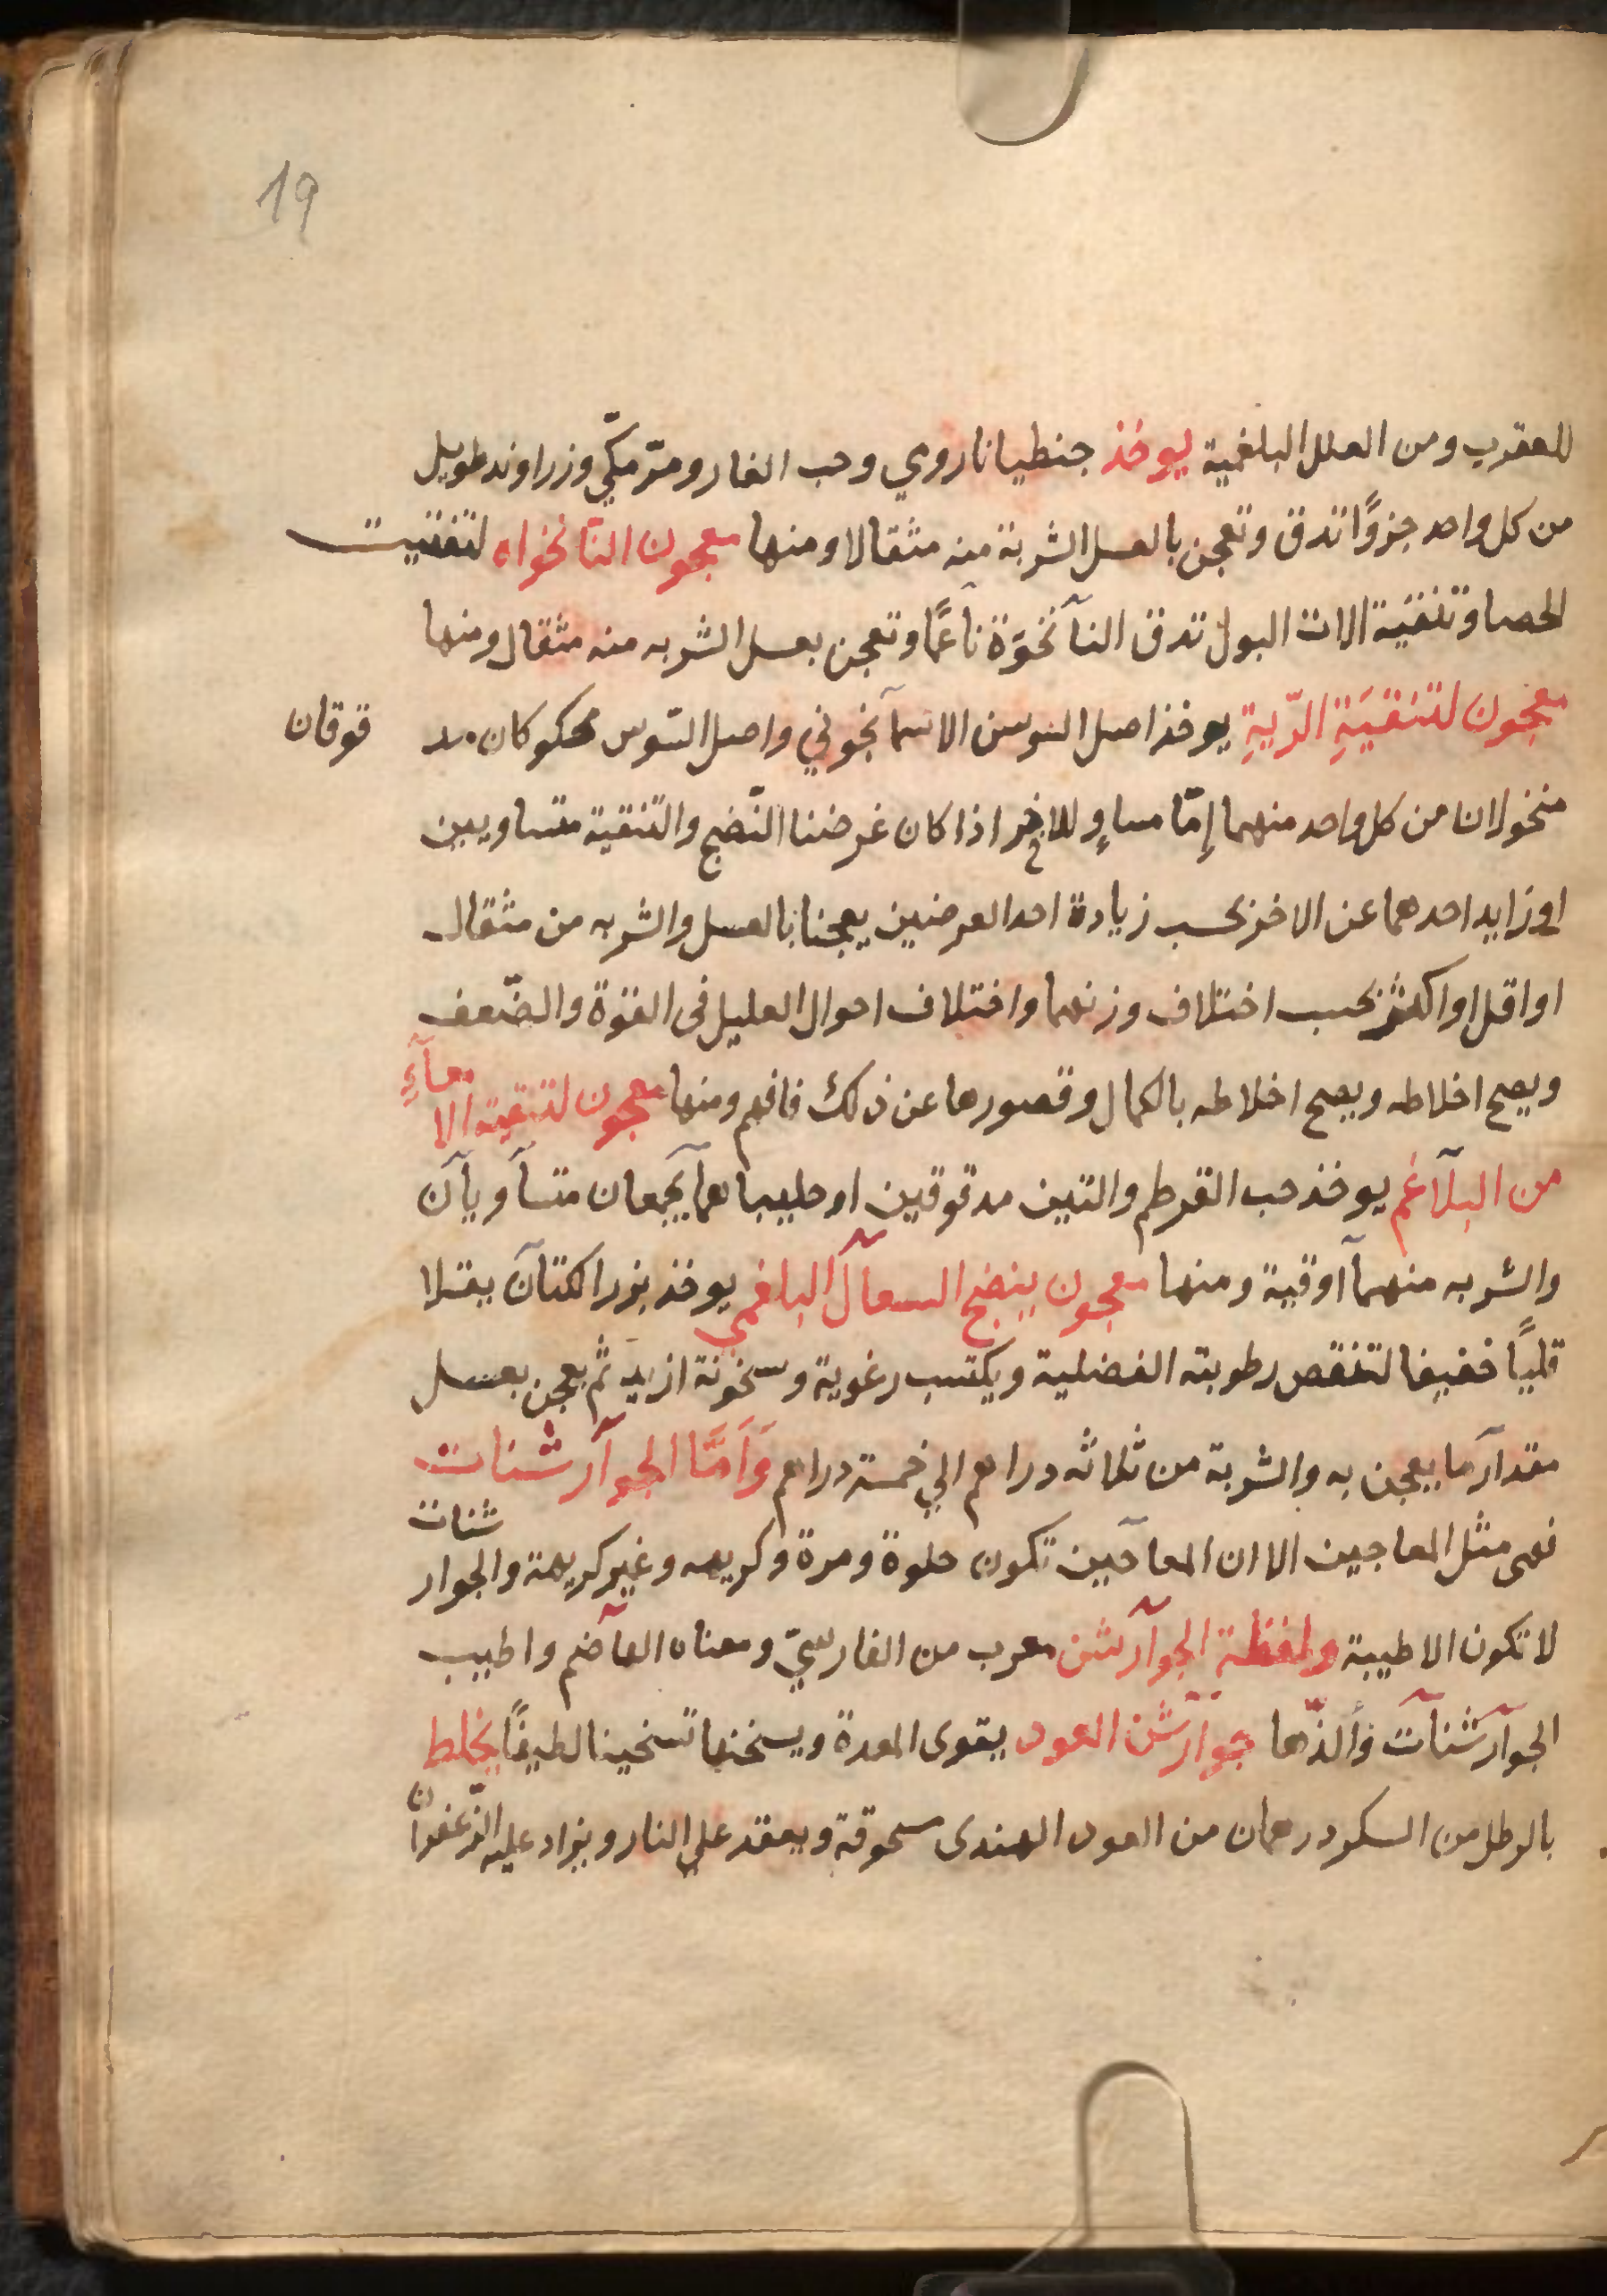 19
للعقرب ومن العلل البلغمية يوخذ جنطيانا روي وحب الغار ومرّ مكّي وزراوند طويل
من كل واحد جزوًا تدق وتعجن بالعسل الشربة منه مثقالا ومنها معجون النانخواه لتفتيت
الحصا وتنقية الات البول تدق النآنخوّة ناعمًا وتعجن بعسل الشربه منه مثقال ومنها
معجون لتنقيَةِ الرّيةِ يوخذ اصل السوسن الاسمآنجوني واصل السّوس محكوكان مد قوقان
منخولان من كل واحد منهما إمّا مساوٍ للاخر اذا كان غرضنا النّضج والتنقية متساويين
او زايد احدهما عن الاخر بحسب زيادة احد العرضين يعجنا بالعسل والشربه من مثقال
او اقل او اكثر بحسب اختلاف وزنهما واختلاف احوال العليل فى القوّة والضّعف
ويصح اخلاطه ويصح اخلاطه بالكمال وقصورها عن ذلك فافهم ومنها معجون لتنقية الا معآءِ
من البلآغم يوخذ حب القرطم والتين مدقوقين او حليباهمآ يجمعان متسآويآن
والشربه منهمآ اوقية ومنها معجون ينضج السعآل البلغمي يوخذ بزر الكتآن يقلا
قليًا خفيفا لتنقص رطوبته الفضلية ويكتسب رغوية وسخونة ازيد ثم يعجن بعسل
مقدآر ما يعجن به والشربة من ثلاثه دراهم الي خمسة دراهم وَاَمَّا الجوآرشنات
فهى مثل المعاجين الا ان المعآجين تكون حلوة ومرة وكريهه وغير كريهة والجوار شنات
لا تكون الا طيبة ولفظة الجوآرشن معرب من الفارسيّ ومعناه الهآضم واطيب
الجوآرشنآت وألذّها جوآرشن العود يقوى المعدة ويسخنها تسخينا لطيفًا يخلط
بالرطل من السكر درهمان من العود الهندى مسحوقة ويعقد علي النار ويزاد عليه الزّعفران